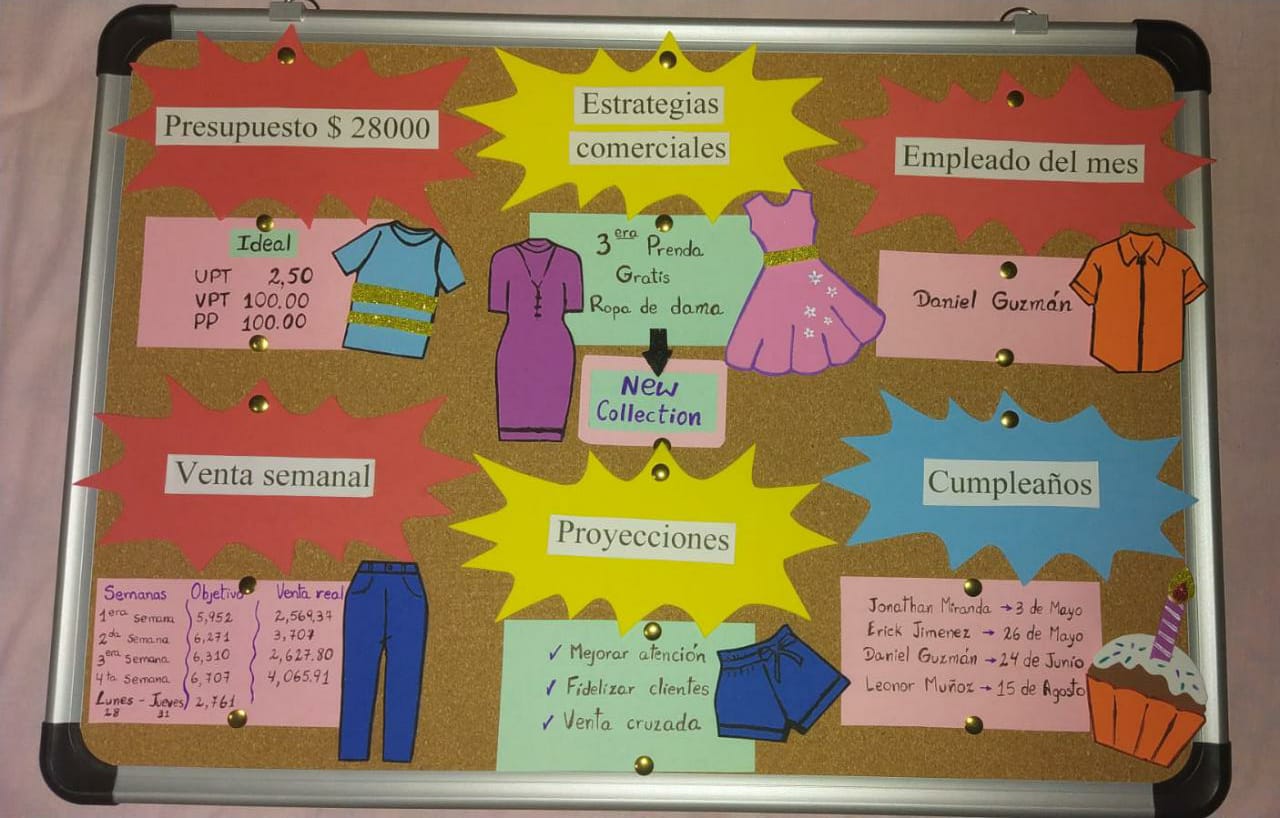 Presupuesto $ 28000
Ideal
UPT 2,50
VPT 100.00
PP 100.00
Estrategias
comerciales
3era Prenda
Gratis
Ropa de dama
New
Collection
Empleado del mes
Daniel Guzmán
Venta semanal
Semanas Objetivo Venta real
1era semana 5,952 2,569,37
2da semana 6,271 3,707
3era semana 6,310 2,627.80
4ta semana 6,707 4,065.91
Lunes - Jueves 2,761
28 31
Proyecciones
✓ Mejorar atención
✓ Fidelizar clientes
✓ Venta cruzada
Cumpleaños
Jonathan Miranda → 3 de Mayo
Erick Jimenez → 26 de Mayo
Daniel Guzmán → 24 de Junio
Leonor Muñoz → 15 de Agosto